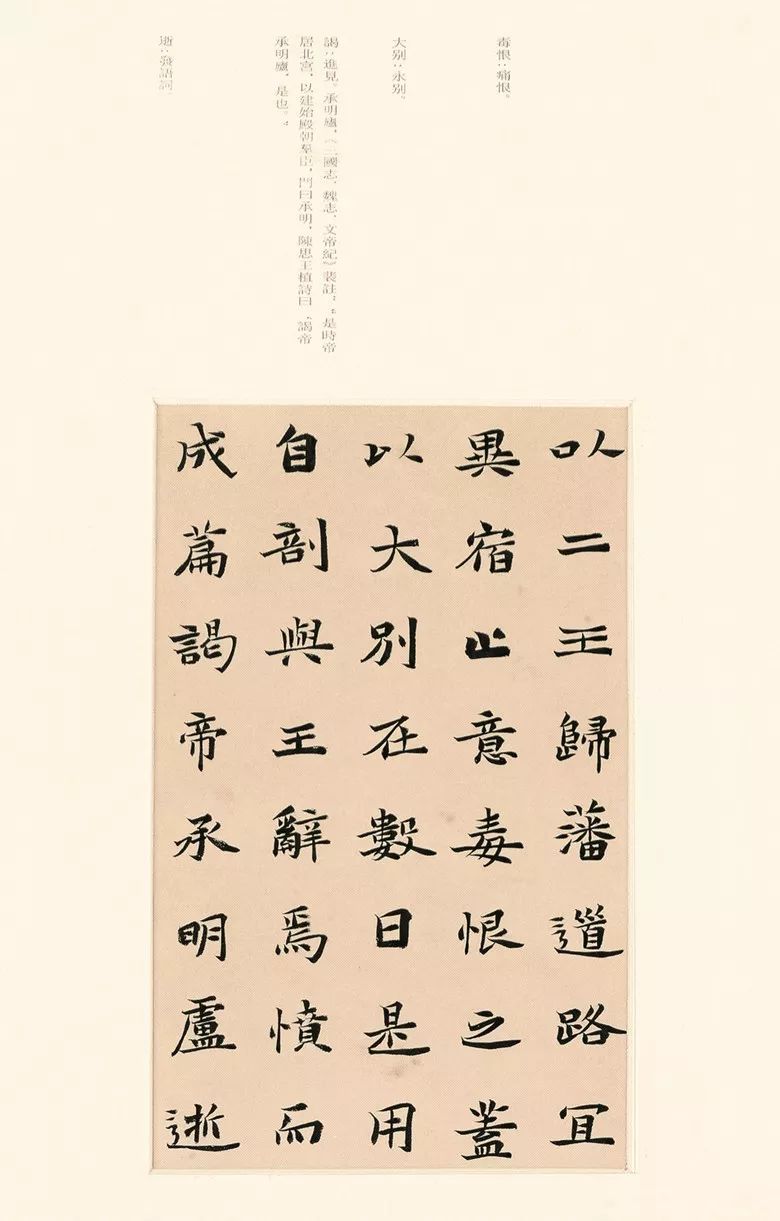 毒恨：痛恨。
大别：永别。
謁：進見。承明廬，《三國志、魏志、文帝紀》裴註：“是時帝
居北宮，以建始殿朝羣臣，門曰承明，陳思王植詩曰‘謁帝
承明廬’是也。”
逝：發語詞。
以二王歸藩道路宜
異宿止意毒恨之蓋
以大別在數日是用
自剖與王辭焉憤而
成篇謁帝承明盧逝